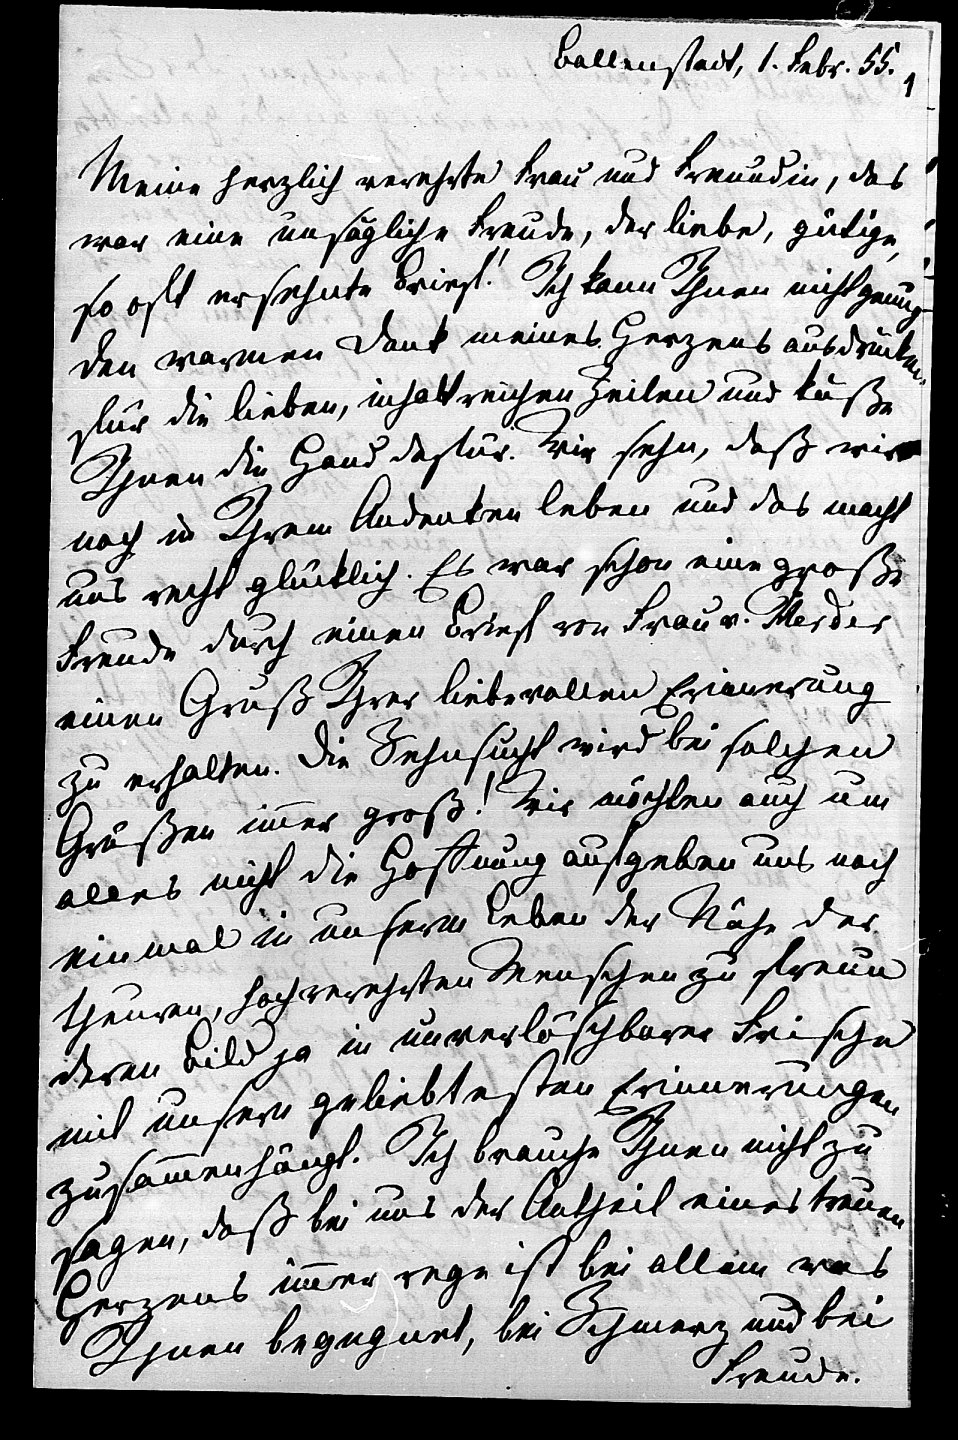 Ballenstedt, 1. Febr. 55.
1
Meine herzlich verehrte Frau und Freundin, das
war eine unsägliche Freude, der liebe, gütige,
so oft ersehnte Brief! Ich kann Ihnen nicht genug
den warmen Dank meines Herzens ausdrücken
für die lieben, inhaltreichen Zeilen und küße
Ihnen die Hand dafür. Wir sehn, daß wir
noch in Ihrem Andenken leben und das macht
uns recht glücklich. Es war schon eine große
Freude durch einen Brief von Frau v.
einen Gruß Ihrer liebevollen Erinnerung
zu erhalten. Die Sehnsucht wird bei solchen
Grüßen im̅er groß! Wir möchten auch um
alles nicht die Hoffnung aufgeben uns noch
einmal in unserm Leben der Nähe der
theuren, hochverehrten Menschen zu freun
deren Bild ja in unverlöschbarer Frische
mit unsern geliebtesten Erinnerungen
zusam̅enhängt. Ich brauche Ihnen nicht zu
sagen, daß bei uns der Antheil eines treuen
Herzens im̅er rege ist bei allem was
Ihnen begegnet, bei Schmerz und bei
Freude.